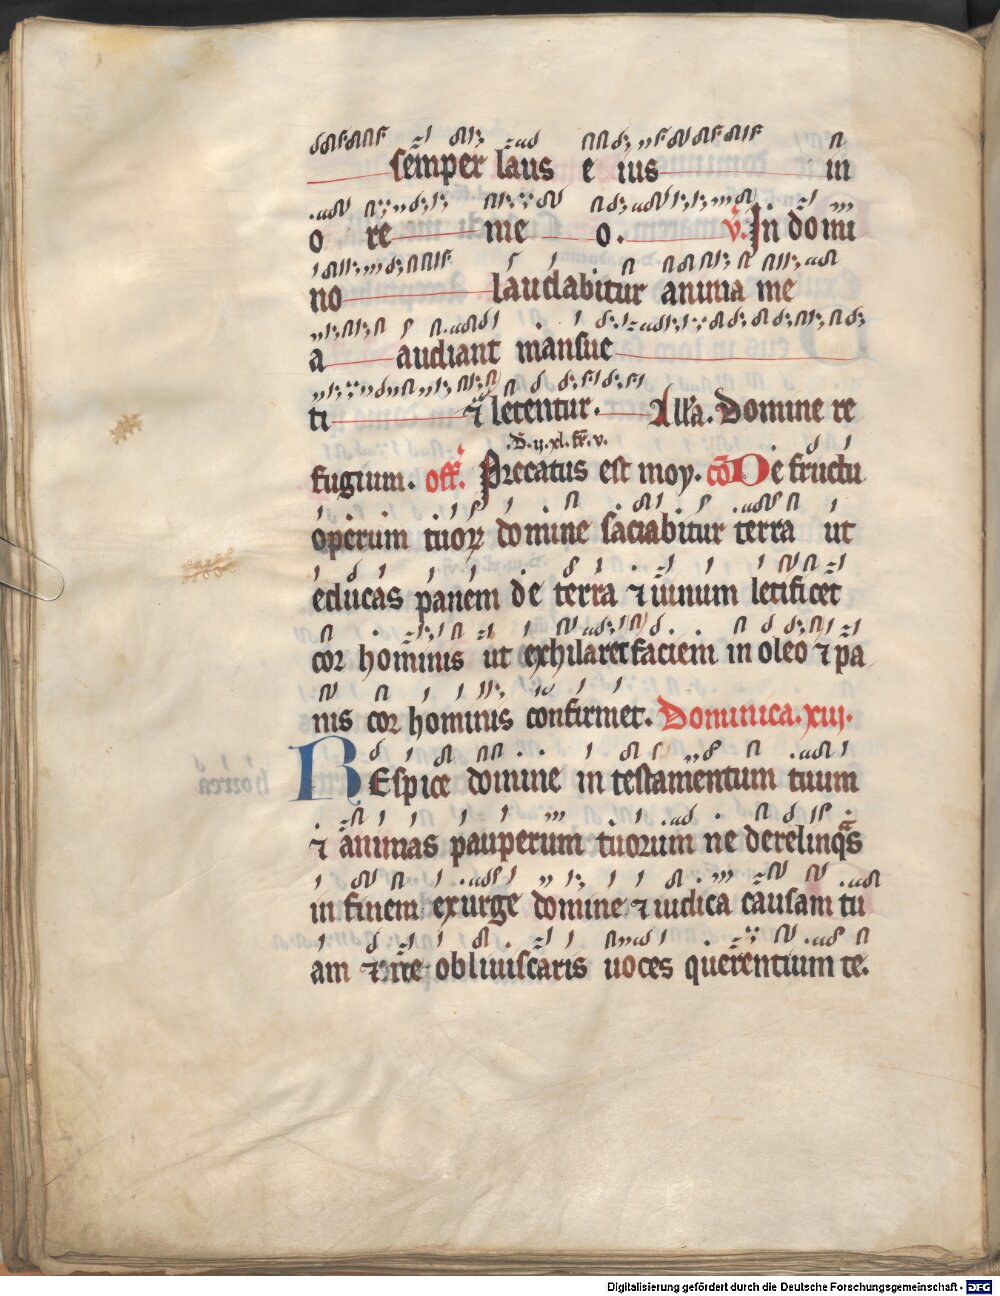 semper laus e ius in
o re me o. v. In domi
no laudabitur anima me
a audiant mansue
ti ⁊ letentur. Alla. Domine re
fugium. off. Precatus est moy. cō De fructu
operum tuoꝝ domine saciabitur terra ut
educas panem de terra ⁊ uinum letificet
cor hominis ut exhilaret faciem in oleo ⁊ pa
nis cor hominis confirmet. Dominica. xiij.
REspice domine in testamentum tuum
⁊ animas pauperum tuorum ne derelinqͣs
in finem exurge domine ⁊ iudica causam tu
am ⁊ obliuiscaris uoces querentium te.
Digitalisierung gefördert durch die Deutsche Forschungsgemeinschaft - DFG